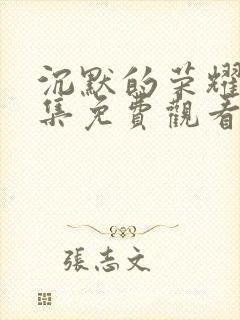 沉默的荣耀
集免費觀看
張志文